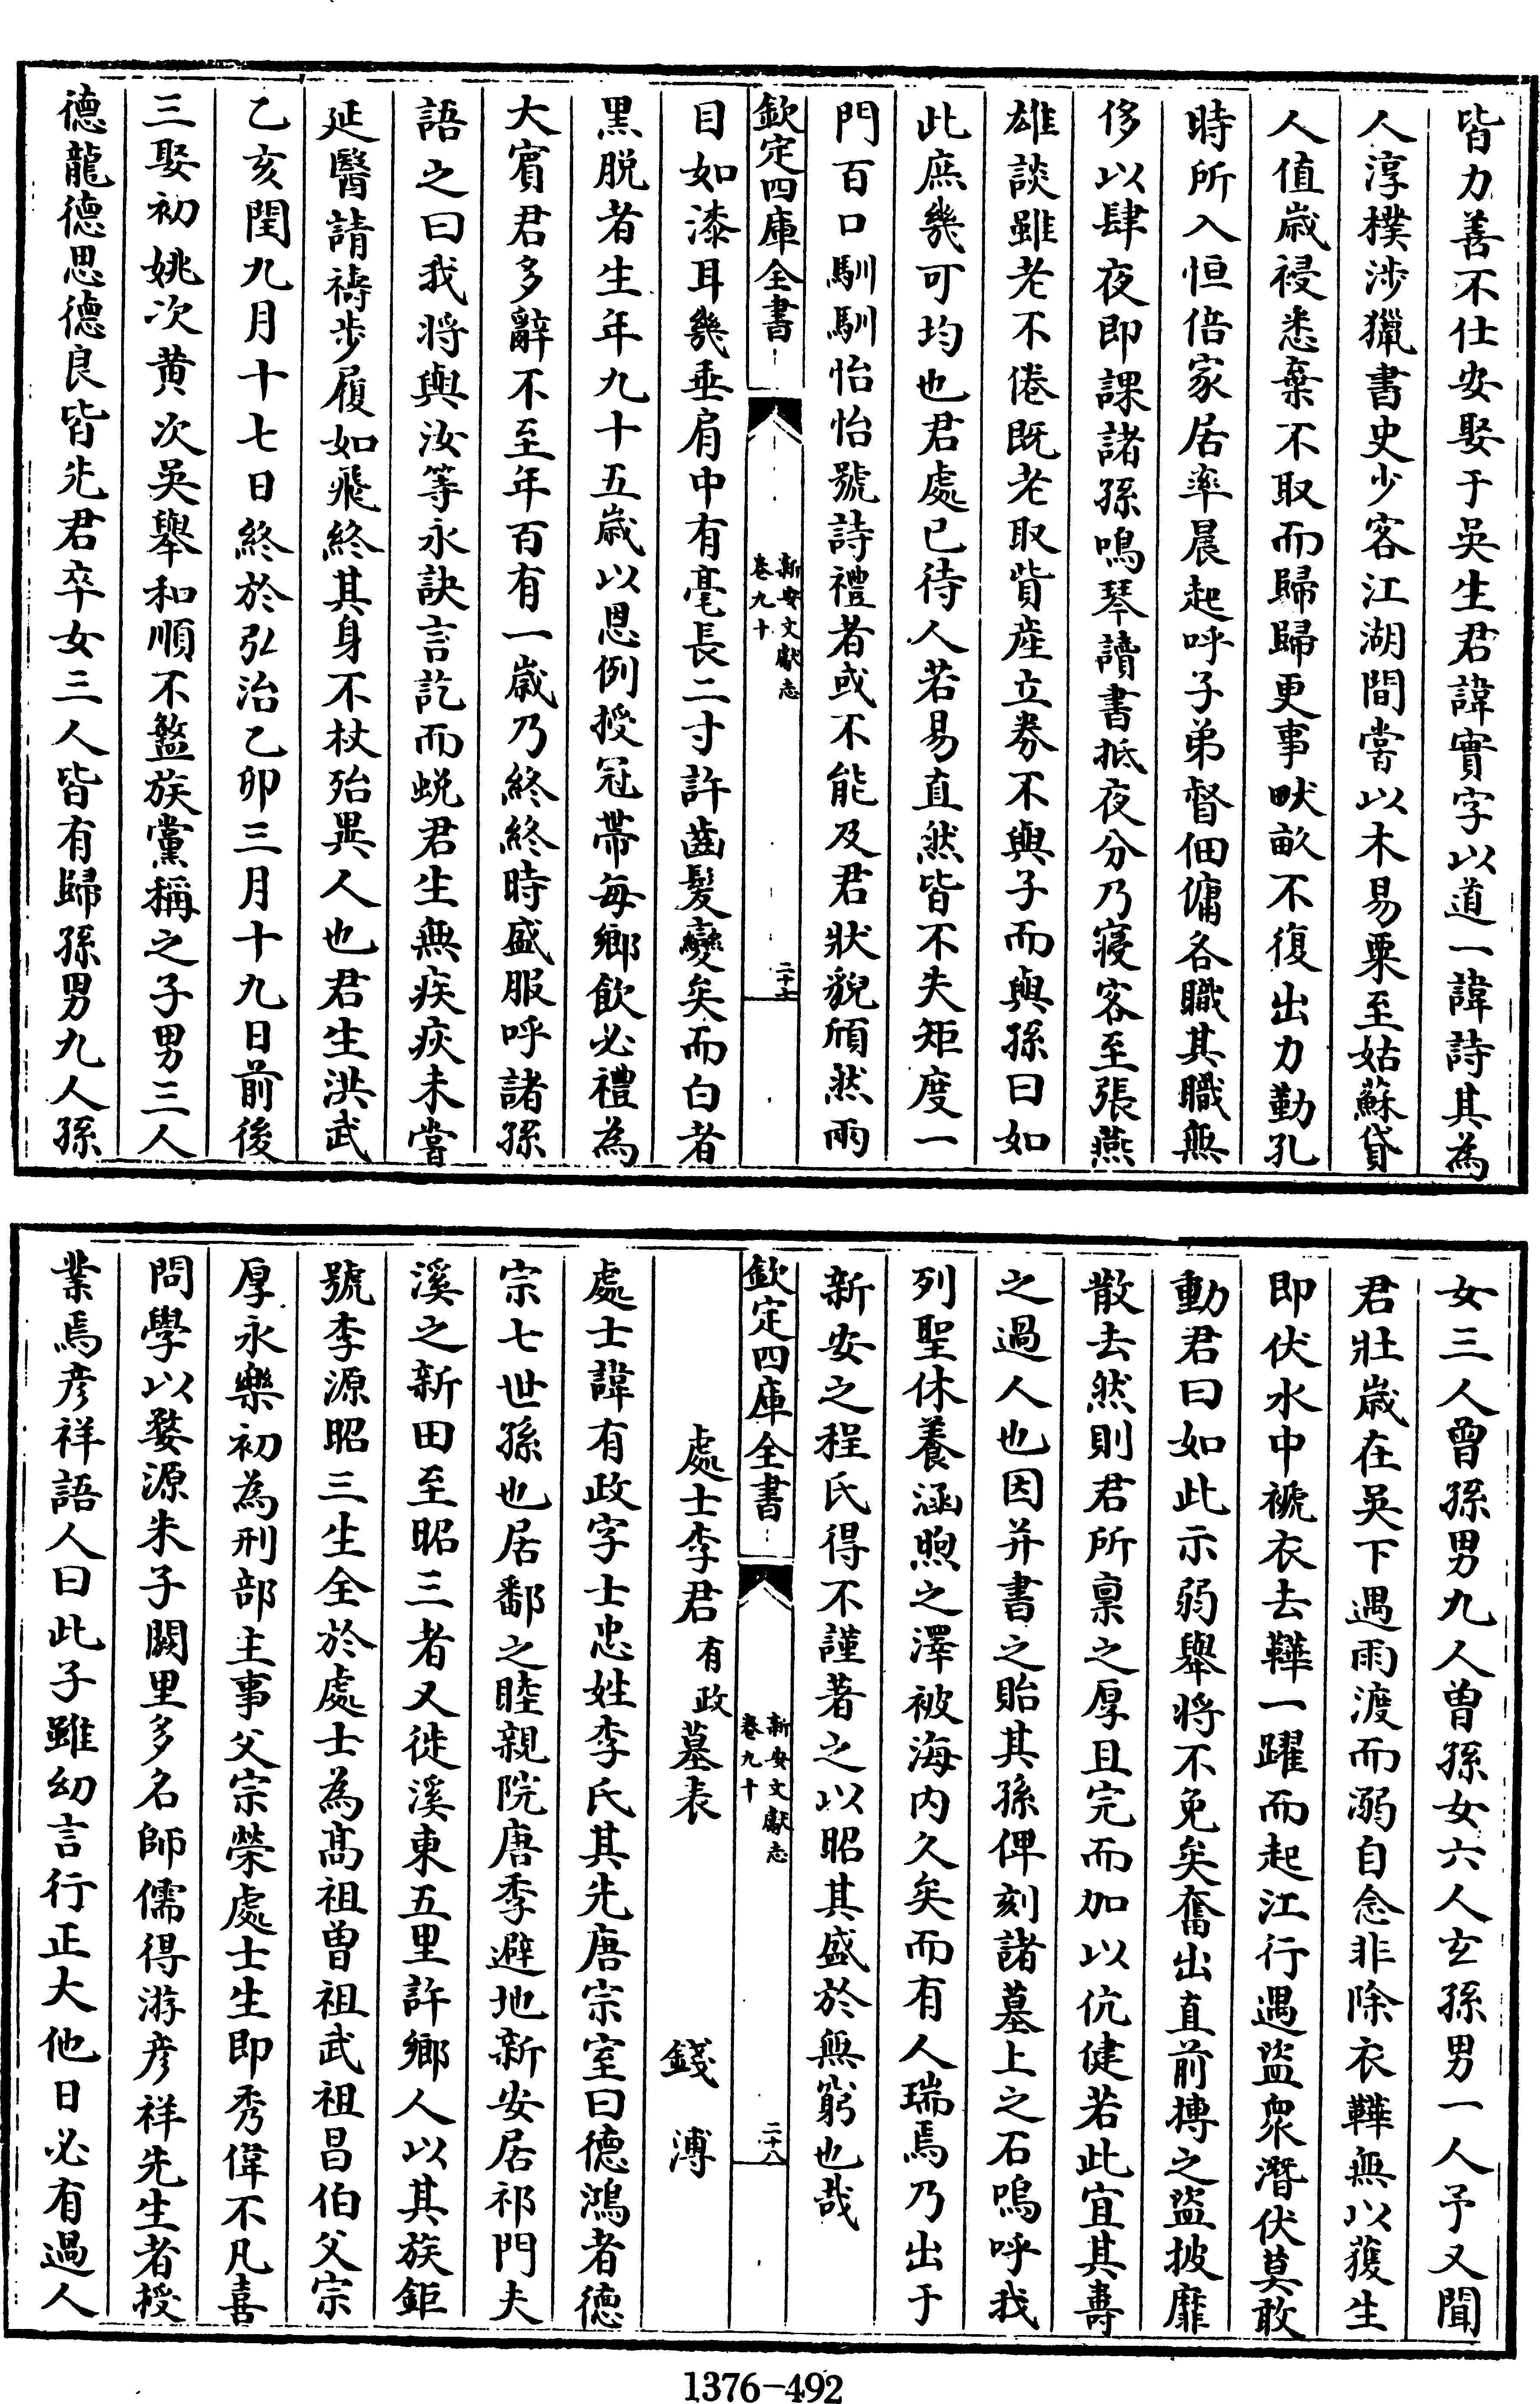 皆力善不仕安娶于吳生君諱實字以道一諱詩其為
人淳樸涉獵書史少客江湖間嘗以木易粟至姑蘇貸
人值嵗祲悉棄不取而歸歸更事畎畝不復出力勤孔
時所入恒倍家居率晨起呼子弟督佃傭各職其職無
侈以肆夜即課諸孫鳴琴讀書抵夜分乃寢客至張燕
雄談雖老不倦既老取貲産立券不與子而與孫曰如
此庶㡬可均也君處已待人若易直然皆不失矩度一
門百口馴馴怡怡號詩禮者或不能及君狀貌頎然兩
欽定四庫全書
新安文獻志
卷九十
二十七
目如漆耳㡬垂肩中有毫長二寸許齒髮變矣而白者
黑脱者生年九十五嵗以恩例授冠帶每鄉飲必禮為
大賓君多辭不至年百有一嵗乃終終時盛服呼諸孫
語之曰我將與汝等永訣言訖而蛻君生無疾疢未嘗
延醫請禱步履如飛終其身不杖殆異人也君生洪武
乙亥閏九月十七日終於弘治乙卯三月十九日前後
三娶初姚次黄次吳舉和順不盭族黨稱之子男三人
德龍德思德良皆先君卒女三人皆有歸孫男九人孫
女三人曾孫男九人曾孫女六人玄孫男一人予又聞
君壯嵗在吳下遇雨渡而溺自念非除衣鞾無以獲生
即伏水中褫衣去鞾一躍而起江行遇盜衆潛伏莫敢
動君曰如此示弱舉將不免矣奮出直前搏之盜披靡
散去然則君所禀之厚且完而加以伉健若此宜其夀
之過人也因并書之貽其孫俾刻諸墓上之石嗚呼我
列聖休養涵煦之澤被海内久矣而有人瑞焉乃出于
新安之程氏得不謹著之以昭其盛於無窮也哉
欽定四庫全書
新安文獻志
卷九十
二十八
處士李君有政墓表　錢溥
處士諱有政字士忠姓李氏其先唐宗室曰德鴻者德
宗七世孫也居鄱之睦親院唐季避地新安居祁門夫
溪之新田至昭三者又徙溪東五里許鄉人以其族鉅
號李源昭三生全於處士為髙祖曽祖武祖昌伯父宗
厚永樂初為刑部主事父宗榮處士生即秀偉不凡喜
問學以婺源朱子闕里多名師儒得游彦祥先生者授
業焉彦祥語人曰此子雖幼言行正大他日必有過人
1376-492